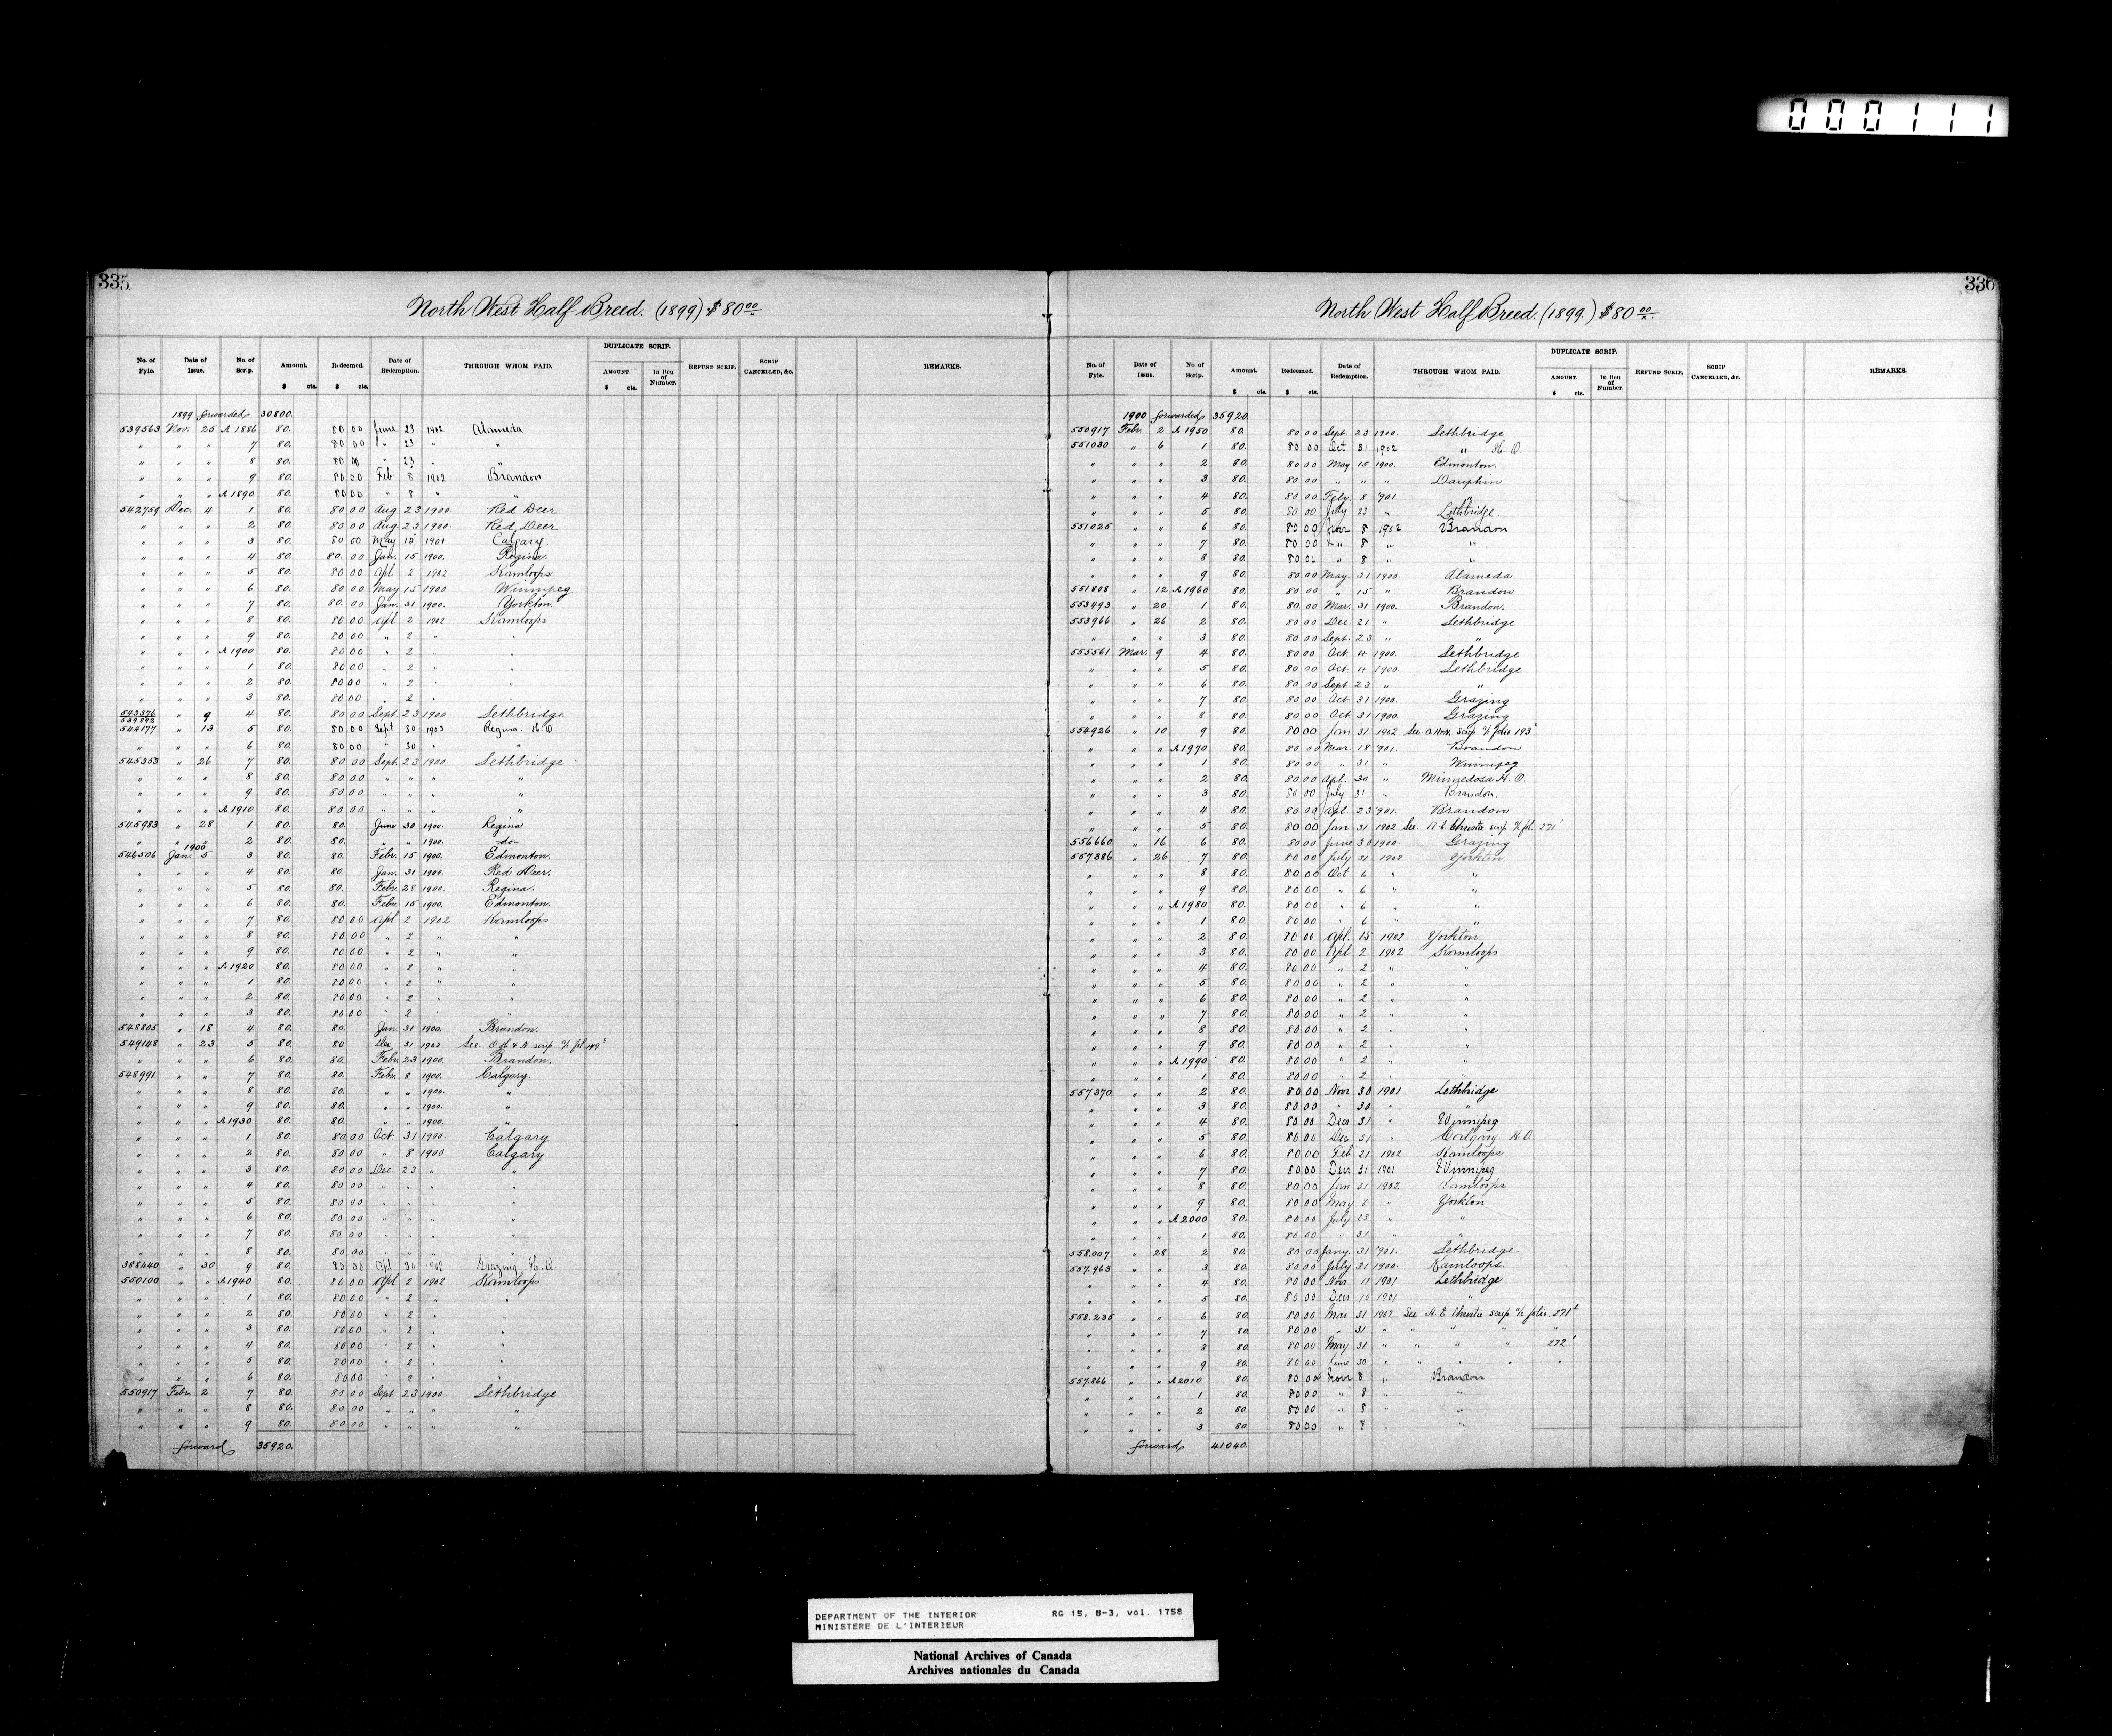 000111
335
North West Half Breed. (1899) $80 00
DUPLICATE SCRIP.
No. of Fyle. Date of Issue. No. of Scrip. Amount. Redeemed. Date of Redemption. THROUGH WHOM PAID. AMOUNT. In lieu of Number. REFUND SCRIP. SCRIP CANCELLED, &c. REMARKS.
$ cts. $ cts. $ cts.
1899 forwarded 30800.
539563 Nov. 25 A 1886 80. 80 00 June 23 1902 Alameda
" " " 7 80. 80 00 " 23 " "
" " " 8 80. 80 00 " 23 " "
" " " 9 80. 80 00 Feb 8 1902 Brandon
" " " A 1890 80. 80 00 " 8 " "
542759 Dec. 4 1 80. 80 00 Aug 23 1900. Red Deer
" " " 2 80. 80 00 Aug 23 1900. Red Deer
" " " 3 80. 80 00 May 15 1901 Calgary.
" " " 4 80. 80. 00 Jan. 15 1900. Regina.
" " " 5 80. 80 00 Apl 2 1902 Kamloops
" " " 6 80. 80 00 May 15 1900 Winnipeg
" " " 7 80. 80. 00 Jan. 31 1900. Yorkton.
" " " 8 80. 80 00 Apl 2 1902 Kamloops
" " " 9 80. 80 00 " 2 " "
" " " A 1900 80. 80 00 " 2 " "
" " " 1 80. 80 00 " 2 " "
" " " 2 80. 80 00 " 2 " "
" " " 3 80. 80 00 " 2 " "
543376 539892 " 9 4 80. 80 00 Sept. 23 1900. Lethbridge
544177 " 13 5 80. 80 00 Sept 30 1903 Regina. H. O
" " " 6 80. 80 00 " 30 " "
545353 " 26 7 80. 80 00 Sept. 23 1900. Lethbridge
" " " 8 80. 80 00 " " " "
" " " 9 80. 80 00 " " " "
" " " A 1910 80. 80 00 " " " "
545983 " 28 1 80. 80. June 30 1900. Regina
" " " 2 80. 80. " " 1900. -do-
1900
546506 Jan. 5 3 80. 80. Febr. 15 1900. Edmonton.
" " " 4 80. 80. Jan. 31 1900. Red Deer.
" " " 5 80. 80. Febr. 28 1900. Regina.
" " " 6 80. 80. Febr. 15 1900. Edmonton.
" " " 7 80. 80 00 Apl 2 1902 Kamloops
" " " 8 80. 80 00 " 2 " "
" " " 9 80. 80 00 " 2 " "
" " " A 1920 80. 80 00 " 2 " "
" " " 1 80. 80 00 " 2 " "
" " " 2 80. 80 00 " 2 " "
" " " 3 80. 80 00 " 2 " "
548805 " 18 4 80. 80. Jan. 31 1900. Brandon.
549148 " 23 5 80. 80 Dec 31 1902 See scrip fol 149
" " " 6 80. 80. Febr. 23 1900. Brandon.
548991 " " 7 80. 80. Febr. 8 1900. Calgary.
" " " 8 80. 80. " " 1900. "
" " " 9 80. 80. " " 1900. "
" " " A 1930 80. 80. " " 1900. "
" " " 1 80. 80 00 Oct. 31 1900. Calgary
" " " 2 80. 80 00 " 8 1900 Calgary
" " " 3 80. 80 00 Dec. 23 " "
" " " 4 80. 80 00 " " " "
" " " 5 80. 80 00 " " " "
" " " 6 80. 80 00 " " " "
" " " 7 80. 80 00 " " " "
" " " 8 80. 80 00 " " " "
388440 " 30 9 80. 80 00 Apl 30 1902 Grazing H. O.
550100 " " A 1940 80. 80 00 Apl 2 1902 Kamloops
" " " 1 80. 80 00 " 2 " "
" " " 2 80. 80 00 " 2 " "
" " " 3 80. 80 00 " 2 " "
" " " 4 80. 80 00 " 2 " "
" " " 5 80. 80 00 " 2 " "
" " " 6 80. 80 00 " 2 " "
550917 Febr. 2 7 80. 80 00 Sept 23 1900. Lethbridge
" " " 8 80. 80 00 " " " "
" " " 9 80. 80 00 " " " "
forward 35920.
336
North West Half Breed. (1899.) $80 00
DUPLICATE SCRIP.
No. of Fyle. Date of Issue. No. of Scrip. Amount. Redeemed. Date of Redemption. THROUGH WHOM PAID. AMOUNT. In lieu of Number. REFUND SCRIP. SCRIP CANCELLED, &c. REMARKS.
$ cts. $ cts. $ cts.
1900 forwarded 35920.
550917 Febr. 2 A 1950 80. 80 00 Sept. 23 1900. Lethbridge
551030 " 6 1 80. 80 00 Oct 31 1902 " H. O.
" " " 2 80. 80 00 May 15 1900. Edmonton.
" " " 3 80. 80 00 " " " Dauphin
" " " 4 80. 80 00 Feby 8 '901 "
" " " 5 80. 80 00 July 23 " Lethbridge
551025 " " 6 80. 80 00 Nov 8 1902 Brandon
" " " 7 80. 80 00 " 8 " "
" " " 8 80. 80 00 " 8 " "
" " " 9 80. 80 00 May. 31 1900. Alameda
551808 " 12 A 1960 80. 80 00 " 15 " Brandon
553493 " 20 1 80. 80. 00 Mar. 31 1900. Brandon.
553966 " 26 2 80. 80 00 Dec 21 " Lethbridge
" " " 3 80. 80 00 Sept. 23 " "
555561 Mar. 9 4 80. 80 00 Oct 4 1900. Lethbridge
" " " 5 80. 80 00 Oct. 4 1900. Lethbridge
" " " 6 80. 80 00 Sept. 23 " "
" " " 7 80. 80 00 Oct. 31 1900. Grazing
" " " 8 80. 80 00 Oct. 31 1900. Grazing
554926 " 10 9 80. 80 00 Jan 31 1902 See scrip folio 193
" " " A 1970 80. 80 00 Mar. 18 '901. Brandon
" " " 1 80. 80 00 " 31 " Winnipeg
" " " 2 80. 80 00 Apl. 30 " Minnedosa H. O.
" " " 3 80. 80 00 July 31 " Brandon.
" " " 4 80. 80 00 Apl. 23 '901. Brandon
" " " 5 80. 80 00 Jan 31 1902 See A. E. Christie scrip fol. 271
556660 " 16 6 80. 80 00 June 30 1900. Grazing
557386 " 26 7 80. 80 00 July 31 1902 Yorkton
" " " 8 80. 80 00 Oct 6 " "
" " " 9 80. 80 00 " 6 " "
" " " A 1980 80. 80 00 " 6 " "
" " " 1 80. 80 00 " 6 " "
" " " 2 80. 80 00 Apl. 15 1902 Yorkton
" " " 3 80. 80 00 Apl 2 1902 Kamloops
" " " 4 80. 80 00 " 2 " "
" " " 5 80. 80 00 " 2 " "
" " " 6 80. 80 00 " 2 " "
" " " 7 80. 80 00 " 2 " "
" " " 8 80. 80 00 " 2 " "
" " " 9 80. 80 00 " 2 " "
" " " A 1990 80. 80 00 " 2 " "
" " " 1 80. 80 00 " 2 " "
557370 " " 2 80. 80 00 Nov 30 1901 Lethbridge
" " " 3 80. 80 00 " 30 " "
" " " 4 80. 80 00 Decr 31 " Winnipeg
" " " 5 80. 80 00 Dec 31 " Calgary H. O
" " " 6 80. 80 00 Feb 21 1902 Kamloops
" " " 7 80. 80 00 Decr 31 1901 Winnipeg
" " " 8 80. 80 00 Jan 31 1902 Kamloops
" " " 9 80. 80 00 May 8 " Yorkton
" " " A 2000 80. 80 00 July 23 " "
" " " 1 80. 80 00 " 31 " "
558.007 " 28 2 80. 80 00 Jany. 31 '901. Lethbridge
557.963 " " 3 80. 80 00 July 31 1900. Kamloops.
" " " 4 80. 80 00 Nov 11 1901 Lethbridge
" " " 5 80. 80 00 Decr 10 1901 "
558.235 " " 6 80. 80 00 Mar 31 1902 See A. E. Christie scrip folio. 271
" " " 7 80. 80 00 " 31 " " " " "
" " " 8 80. 80 00 May 31 " " " " 272
" " " 9 80. 80 00 June 30 " " " " "
557.866 " " A 2010 80. 80 00 Novr 8 " Brandon
" " " 1 80. 80 00 " 8 " "
" " " 2 80. 80 00 " 8 " "
" " " 3 80. 80 00 " 8 " "
forward 41040.
DEPARTMENT OF THE INTERIOR RG 15, B-3, vol. 1758
MINISTERE DE L'INTERIEUR
National Archives of Canada
Archives nationales du Canada